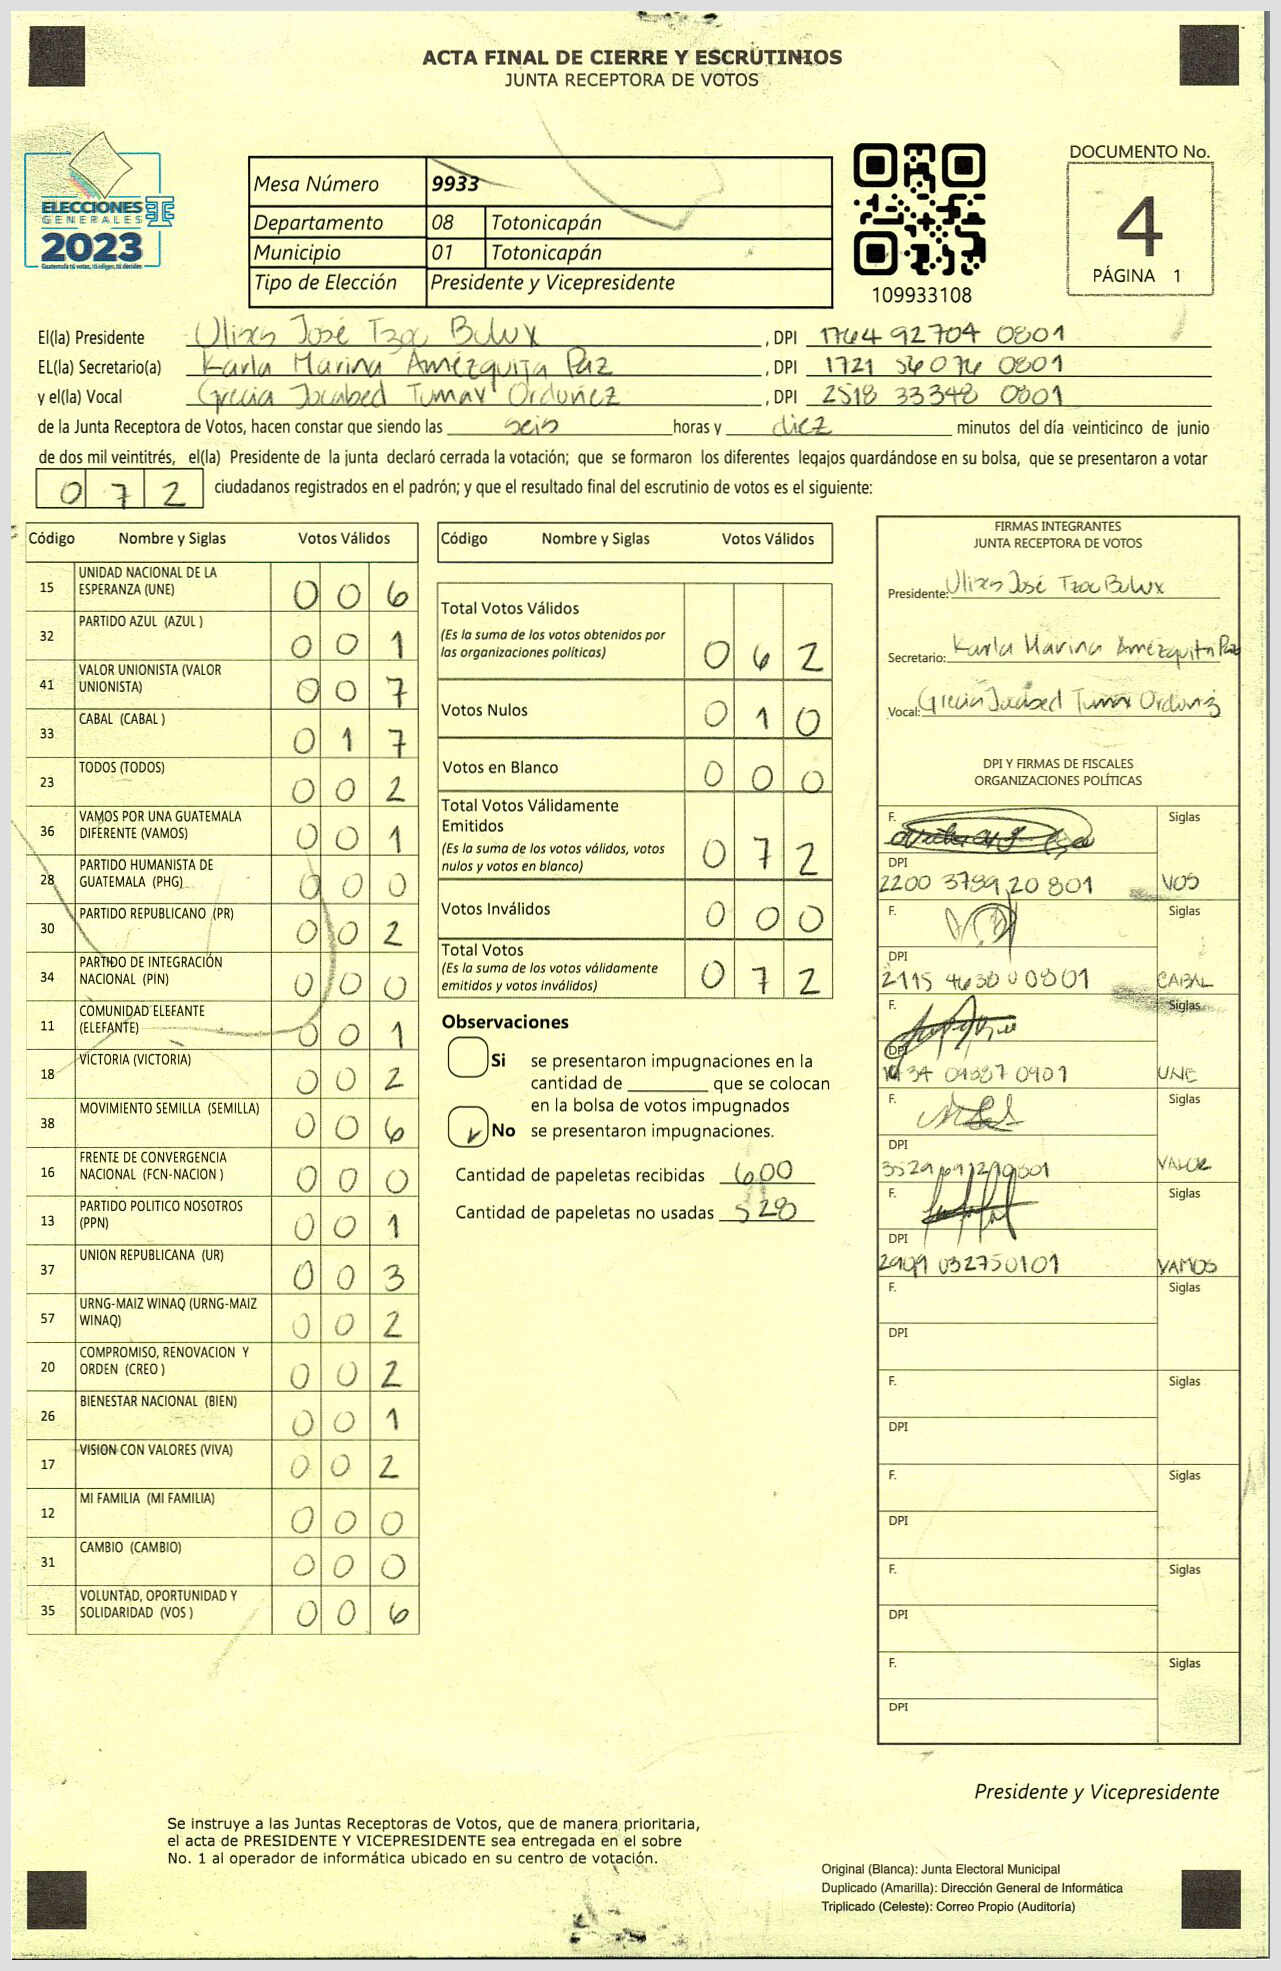 ACTA FINAL DE CIERRE Y ESCRUTINIOS
JUNTA RECEPTORA DE VOTOS
ELECCIONES
GENERALES
2023
Guatemala tú votas, tú eliges, tú decides
Mesa Número 9933
Departamento 08 Totonicapán
Municipio 01 Totonicapán
Tipo de Elección Presidente y Vicepresidente
109933108
DOCUMENTO No.
4
PÁGINA 1
El(la) Presidente Ulises José Tzoc Bulux, DPI 1764 92704 0801
EL(la) Secretario(a) Karla Marina Amézquita Paz, DPI 1721 56076 0801
y el(la) Vocal Grecia Jocabed Tumax Ordoñez, DPI 2518 33348 0801
de la Junta Receptora de Votos, hacen constar que siendo las seis horas y diez minutos del día veinticinco de junio
de dos mil veintitrés, el(la) Presidente de la junta declaró cerrada la votación; que se formaron los diferentes legajos guardándose en su bolsa, que se presentaron a votar
0 7 2 ciudadanos registrados en el padrón; y que el resultado final del escrutinio de votos es el siguiente:
Código Nombre y Siglas Votos Válidos
15 UNIDAD NACIONAL DE LA
ESPERANZA (UNE) 0 0 6
32 PARTIDO AZUL (AZUL ) 0 0 1
41 VALOR UNIONISTA (VALOR
UNIONISTA) 0 0 7
33 CABAL (CABAL ) 0 1 7
23 TODOS (TODOS) 0 0 2
36 VAMOS POR UNA GUATEMALA
DIFERENTE (VAMOS) 0 0 1
28 PARTIDO HUMANISTA DE
GUATEMALA (PHG) 0 0 0
30 PARTIDO REPUBLICANO (PR) 0 0 2
34 PARTIDO DE INTEGRACIÓN
NACIONAL (PIN) 0 0 0
11 COMUNIDAD ELEFANTE
(ELEFANTE) 0 0 1
18 VICTORIA (VICTORIA) 0 0 2
38 MOVIMIENTO SEMILLA (SEMILLA) 0 0 6
16 FRENTE DE CONVERGENCIA
NACIONAL (FCN-NACION ) 0 0 0
13 PARTIDO POLITICO NOSOTROS
(PPN) 0 0 1
37 UNION REPUBLICANA (UR) 0 0 3
57 URNG-MAIZ WINAQ (URNG-MAIZ
WINAQ) 0 0 2
20 COMPROMISO, RENOVACION Y
ORDEN (CREO ) 0 0 2
26 BIENESTAR NACIONAL (BIEN) 0 0 1
17 VISION CON VALORES (VIVA) 0 0 2
12 MI FAMILIA (MI FAMILIA) 0 0 0
31 CAMBIO (CAMBIO) 0 0 0
35 VOLUNTAD, OPORTUNIDAD Y
SOLIDARIDAD (VOS ) 0 0 6
Código Nombre y Siglas Votos Válidos
Total Votos Válidos
(Es la suma de los votos obtenidos por
las organizaciones políticas) 0 6 2
Votos Nulos 0 1 0
Votos en Blanco 0 0 0
Total Votos Válidamente
Emitidos
(Es la suma de los votos válidos, votos
nulos y votos en blanco) 0 7 2
Votos Inválidos 0 0 0
Total Votos
(Es la suma de los votos válidamente
emitidos y votos inválidos) 0 7 2
Observaciones
Si se presentaron impugnaciones en la
cantidad de ________ que se colocan
en la bolsa de votos impugnados
No se presentaron impugnaciones.
Cantidad de papeletas recibidas 600
Cantidad de papeletas no usadas 528
FIRMAS INTEGRANTES
JUNTA RECEPTORA DE VOTOS
Presidente: Ulises José Tzoc Bulux
Secretario: Karla Marina Amézquita Paz
Vocal: Grecia Jocabed Tumax Ordoñez
DPI Y FIRMAS DE FISCALES
ORGANIZACIONES POLÍTICAS
F. Siglas
DPI
2200 3789 20801 VOS
F. Siglas
DPI
2115 4630 0 0801 CABAL
F. Siglas
DPI
0901 UNE
F. Siglas
DPI
VALOR
F. Siglas
DPI
2909 032750101 VAMOS
F. Siglas
DPI
F. Siglas
DPI
F. Siglas
DPI
F. Siglas
DPI
F. Siglas
DPI
Presidente y Vicepresidente
Se instruye a las Juntas Receptoras de Votos, que de manera prioritaria,
el acta de PRESIDENTE Y VICEPRESIDENTE sea entregada en el sobre
No. 1 al operador de informática ubicado en su centro de votación.
Original (Blanca): Junta Electoral Municipal
Duplicado (Amarilla): Dirección General de Informática
Triplicado (Celeste): Correo Propio (Auditoría)